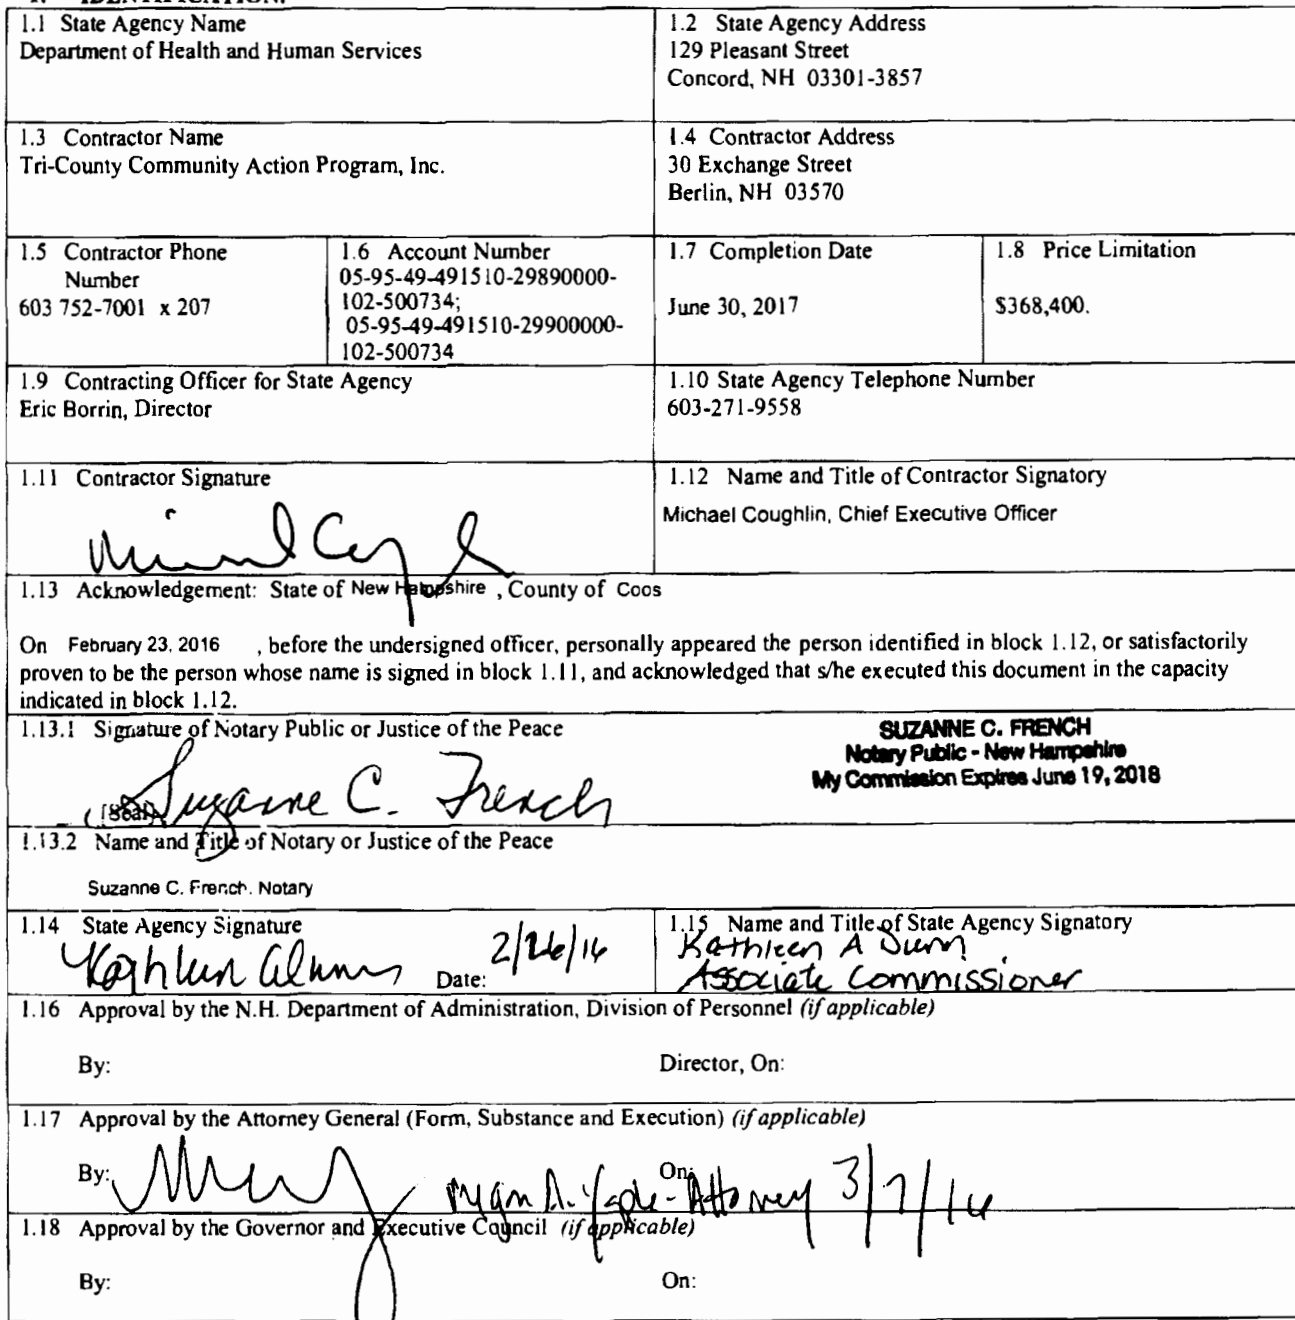 1.1 State Agency Name
Department of Health and Human Services
1.2 State Agency Address
129 Pleasant Street
Concord, NH 03301-3857
1.3 Contractor Name
Tri-County Community Action Program, Inc.
1.4 Contractor Address
30 Exchange Street
Berlin, NH 03570
1.5 Contractor Phone
Number
603 752-7001 x 207
1.6 Account Number
05-95-49-491510-29890000-
102-500734;
05-95-49-491510-29900000-
102-500734
1.7 Completion Date
June 30, 2017
1.8 Price Limitation
$368,400.
1.9 Contracting Officer for State Agency
Eric Borrin, Director
1.10 State Agency Telephone Number
603-271-9558
1.11 Contractor Signature
1.12 Name and Title of Contractor Signatory
Michael Coughlin, Chief Executive Officer
1.13 Acknowledgement: State of New Hampshire , County of Coos
On February 23, 2016 , before the undersigned officer, personally appeared the person identified in block 1.12, or satisfactorily
proven to be the person whose name is signed in block 1.11, and acknowledged that s/he executed this document in the capacity
indicated in block 1.12.
1.13.1 Signature of Notary Public or Justice of the Peace
SUZANNE C. FRENCH
Notary Public - New Hampshire
My Commission Expires June 19, 2018
[Seal] Suzanne C. French
1.13.2 Name and Title of Notary or Justice of the Peace
Suzanne C. French, Notary
1.14 State Agency Signature
Date: 2/26/16
1.15 Name and Title of State Agency Signatory
Kathleen A Dunn
Associate Commissioner
1.16 Approval by the N.H. Department of Administration, Division of Personnel (if applicable)
By: Director, On:
1.17 Approval by the Attorney General (Form, Substance and Execution) (if applicable)
By: On: Attorney 3/7/16
1.18 Approval by the Governor and Executive Council (if applicable)
By: On: